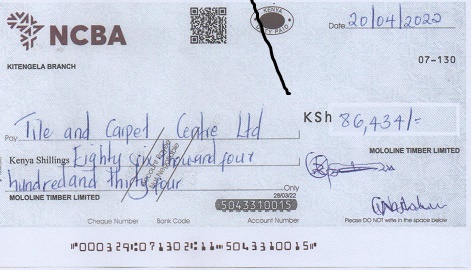 NCBA
KENYA
DUTY PAID
Date 20/04/2022
KITENGELA BRANCH
07-130
Pay Tile and Carpet Centre Ltd
KSh 86,434/-
Kenya Shillings Eighty six thousand four
hundred and thirty four
Only
MOLOLINE TIMBER LIMITED
MOLOLINE TIMBER LIMITED
28/03/22
5043310015
Cheque Number Bank Code Account Number
Please DO NOT write in the space below
"000329"07130211 5043310015"